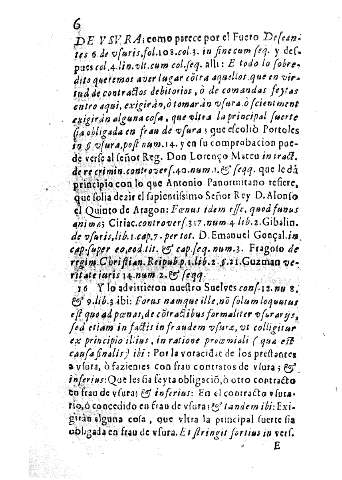 6
DE VSVRA: como parece por el Fuero Desean-
tes 6 de vsuris, fol. 103. col. 3. in fine cum seq. y des-
pues col. 4. lin. vlt. cum col. seq. alli: E todo lo sobre-
dito queremos aver lugar cõtra aquellos que en vir-
tud de contractos debitorios, ò de comandas feytas
entro aqui, exigirán, ò tomarán vsura, ò scientment
exigirán alguna cosa, que vltra la principal suerte
sia obligada en frau de vsura; que escoliò Portoles
in §. vsura, post num. 14. y en su comprobacion pue-
de verse al señor Reg. Don Lorenço Mateu in tract.
de re crimin. controvers. 40. num. 1. & seqq. que le dà
principio con lo que Antonio Panormitano refiere,
que solia dezir el sapientissimo Señor Rey D. Alonso
el Quinto de Aragon: Fœnus idem esse, quod funus
animæ; Ciriac. controvers. 317. num 4 lib. 2. Gibalin.
de vsuris, lib. 1. cap. 7. per tot. D. Emanuel Gonçal. in
cap. super eo, eod. tit. & cap. seq. num. 3. Fragoso de
regim. Christian. Reipub. p. 1. lib. 2. §. 21. Guzman ve-
ritate iuris 14. num 2. & seqq.
16 Y lo advirtieron nuestro Suelves cons. 12. nu 8,
& 9. lib. 3 ibi: Forus namque ille, nõ solum loquutus
est quo ad pœnas, de cõtractibus formaliter vsurarijs,
sed etiam in factis in fraudem vsuræ, vt colligitur
ex principio illius, in ratione proœmiali (qua est
causa finalis) ibi: Por la voracidat de los prestantes
a vsura, ò fazientes con frau contratos de vsura; &
inferius: Que les sia feyta obligació, ò otro contracto
en frau de vsura; & inferius: En el contracto vsura-
rio, ò concedido en frau de vsura; & tandem ibi: Exi-
girán alguna cosa, que vltra la principal suerte sia
obligada en frau de vsura. Et stringit fortius in vers.
E